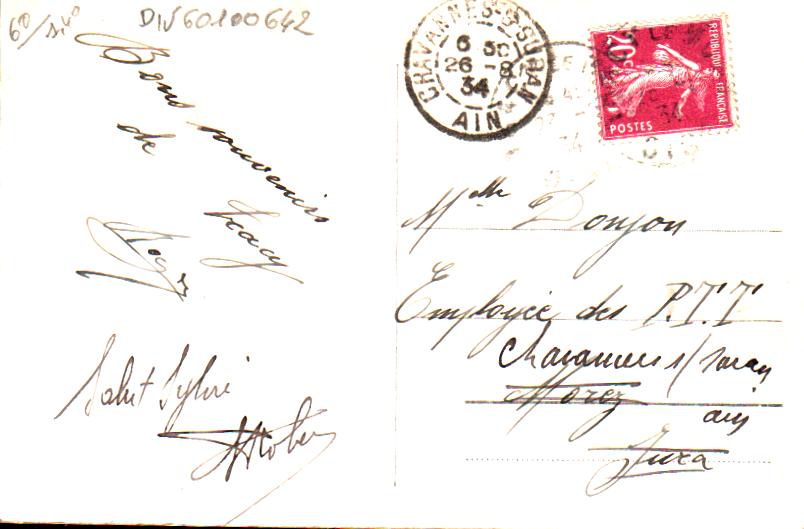 60/
DIV60100642
Bons souvenirs
de Tracy
Roger
Salut Sylvie
CHAVANNES-S-SURAN
6 30
26 -8
34
AIN
20c
REPUBLIQUE FRANÇAISE
POSTES
Mlle Donjon
Employée des P.T.T
Chavannes s/Suran
Morez
ain
Jura